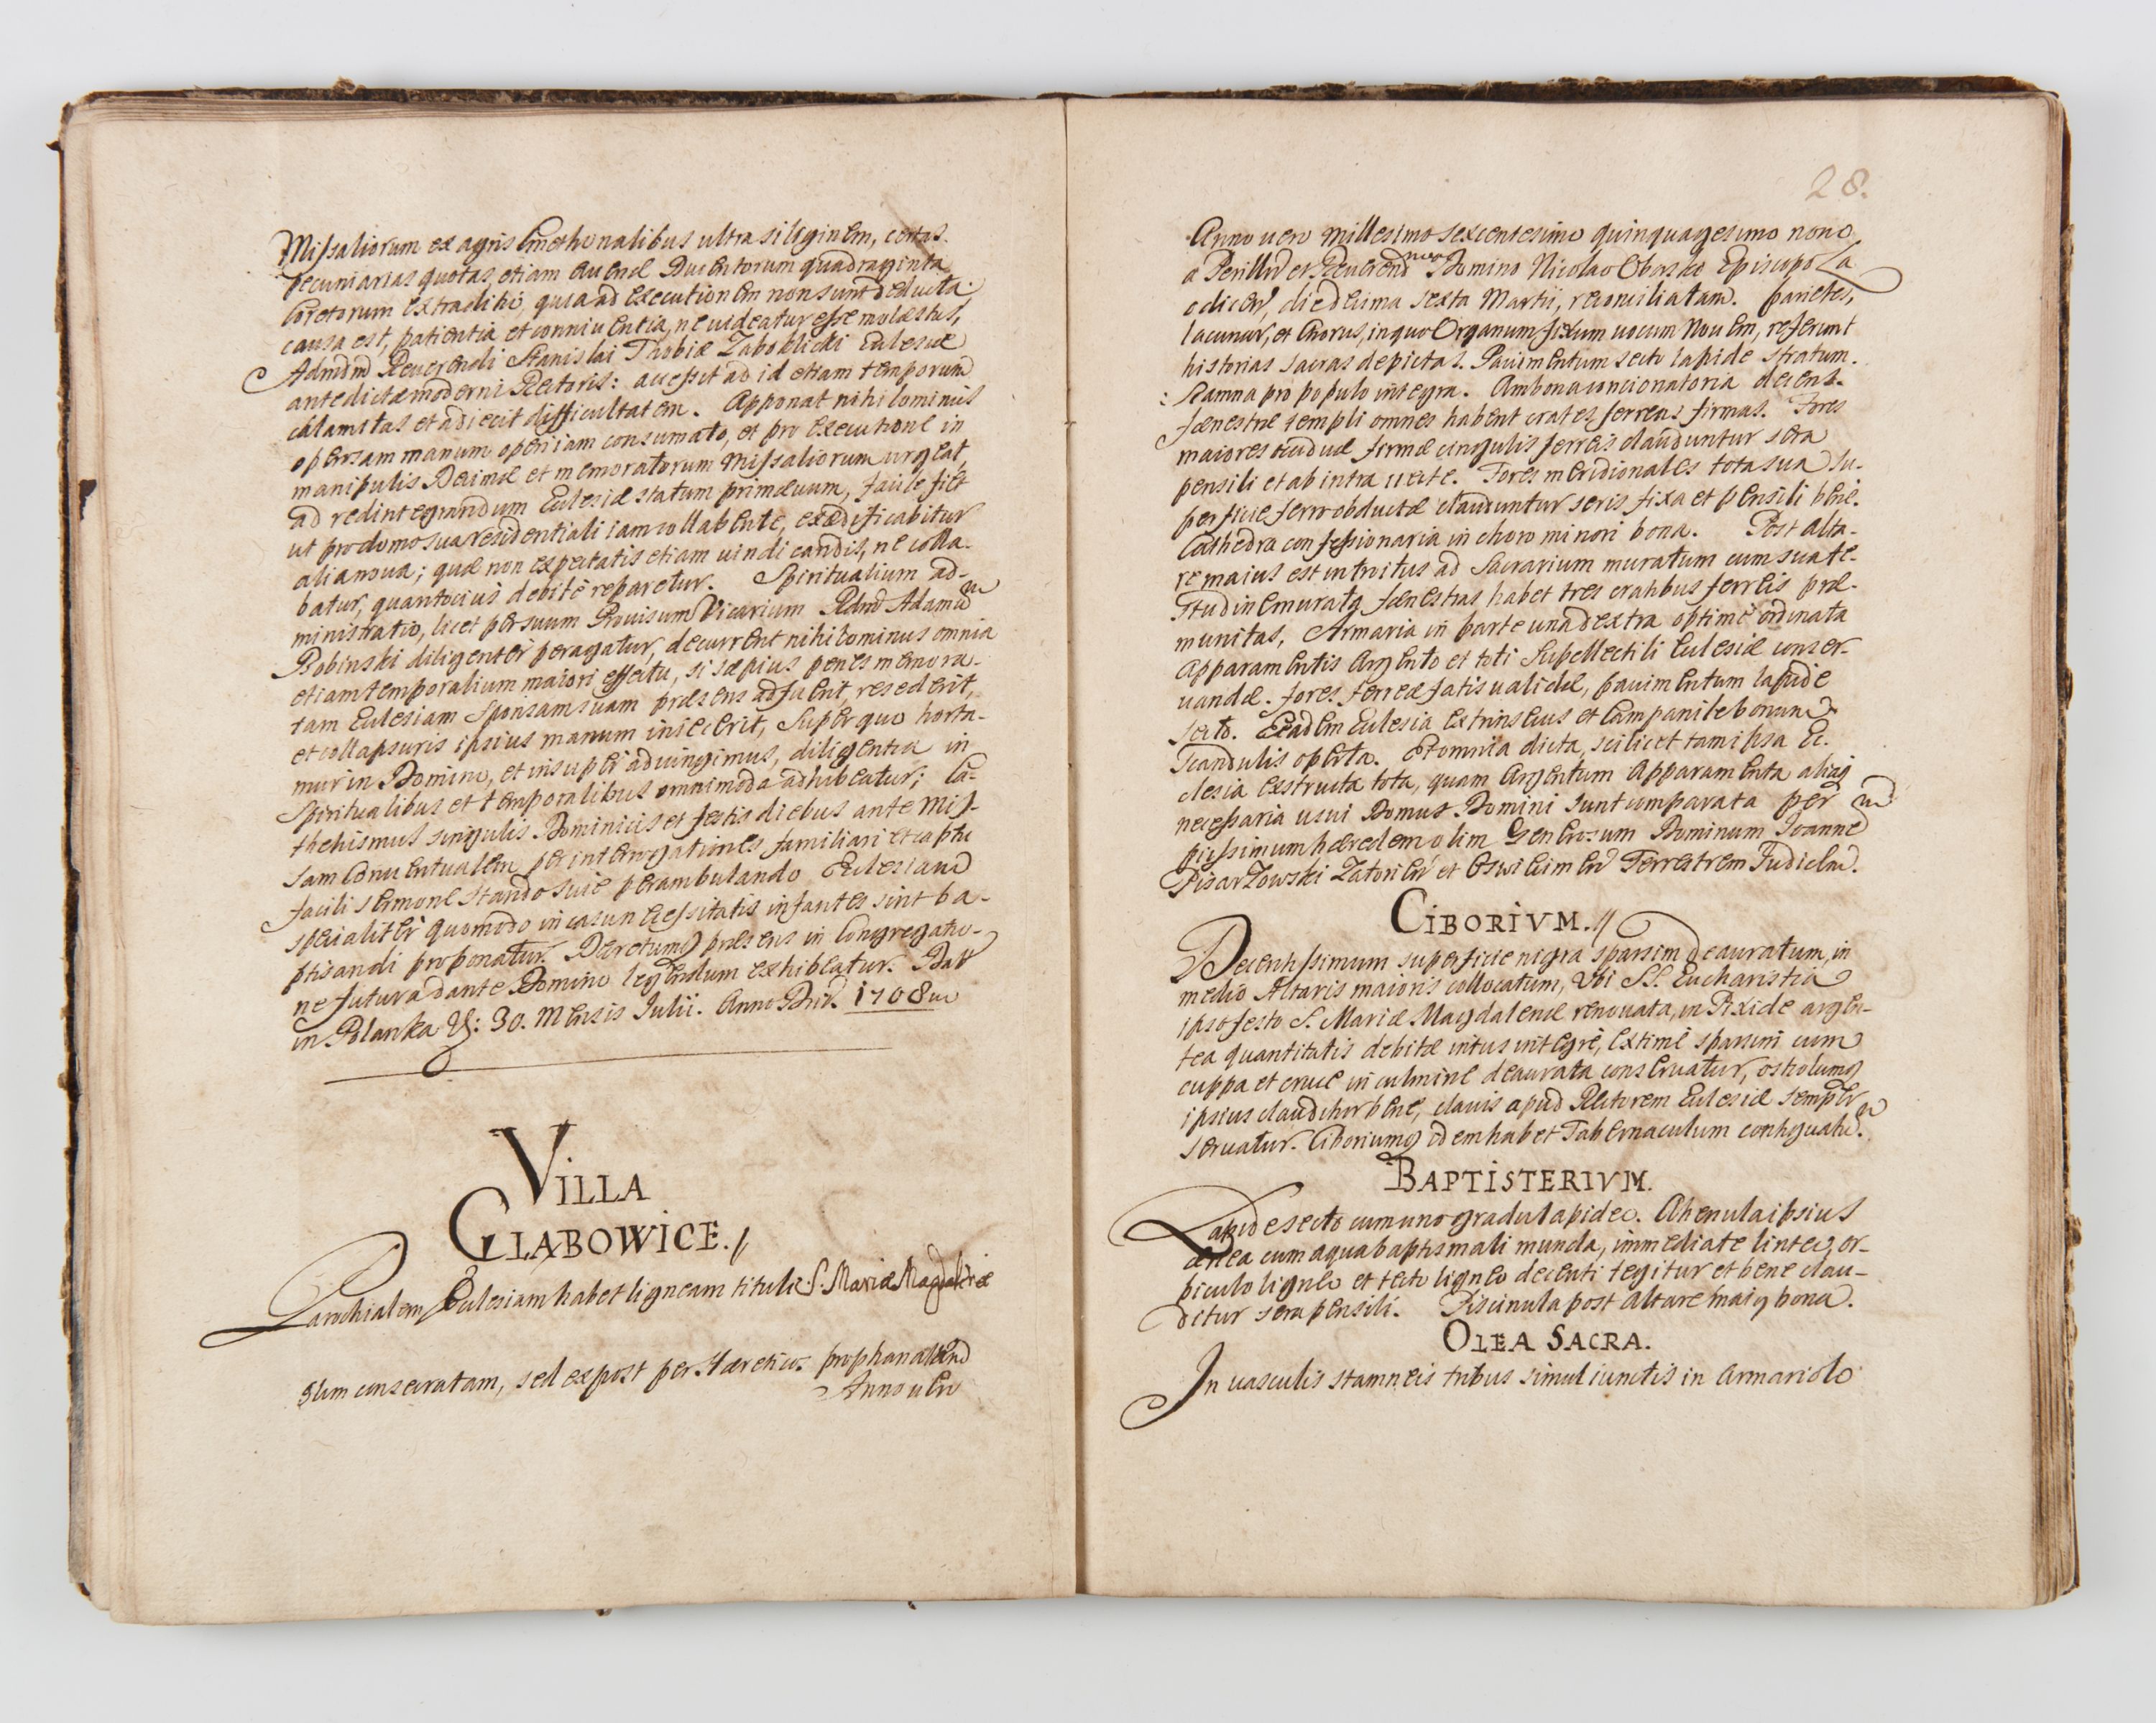 Missaliorum ex agris Cmethonalibus ultra siliginem, certas
pecuniarias quotas, etiam avenæ Ducentorum quadraginta
Coretorum extradibi, quia ad executionem non sunt deducta:
causa est, patientia et conniventia, ne videatur esse molestus,
Admdm Reverendi Stanislai Thobiæ Zaboklicki Eulesiæ
antedictæ moderni Rectoris: accessit ad id etiam temporum
calamitas et adiecit difficultatem. Apponat nihilominus
operosam manum operi iam consumato, et pro executione in
manipulis Decimæ et memoratorum Missaliorum urgeat,
ad redintegrandum Eulesiæ statum primævum, facile fiet
ut pro domo sua residentiali iam collabente, exædificabitur
alia nova; quæ non expectatis etiam vindicandis, ne colla-
batur, quantocius debitè reparetur. Spiritualium ad-
ministratio, licet per suum Provisum Vicarium Rdnd Adamum
Bobinski diligenter peragatur, decurrent nihilominus omnia
etiam temporalium maiori effectu, si sæpius penes memora-
tam Eulesiam Sponsam suam præsens adfuerit, resederit,
et collapsuris ipsius manum iniecerit, Super quo horta-
mur in Domino, et insuper adiungimus, diligentia in
Spiritualibus et temporalibus omnimoda adhibeatur; Ca-
thehismus singulis Dominicis et festis diebus ante Mis-
sam Conventualem per interrogationes familiari et captu
facili sermone stando sive perambulando Eulesiam
specialiter quomodo in casu necessitatis infantes sint ba-
ptisandi proponatur. Decretumq præsens in Congregatio-
ne futura dante Domino legendum exhibeatur. Datt
in Polanka : 30. Mensis Iulii. Anno Dni. 1708
VILLA
GLABOWICE.//
Parochialem Eulesiam habet ligneam tituli S. Mariæ Magdalenæ
olim consecratam, sed expost per Hæreticos prophanatam
Anno vero
28.
Anno vero millesimo sexcentesimo quinquagesimo nono
a Perillri et Reverendmo Domino Nicolao Oborsko Episcopo La
odicen, die decima sexta Martii, reconciliatam. Parietes,
lacunar, et Chorus, in quo Organum fixum vocum Novem, referunt
historias sacras depictas. Pavimentum secto lapide stratum.
Scamna pro populo integra. Ambona concionatoria decens.
Fænestræ templi omnes habent crates ferreas firmas. Fores
maiores firmæ cingulis ferreis clauduntur sera
pensili et ab intra vecte. Fores meridionales tota sua su-
perficie ferro obductæ clauduntur seris fixa et pensili bene.
Cathedra confessionaria in choro minori bona. Post Alta-
re maius est introitus ad Sacrarium muratum cum sua te-
studine murata fænestras habet tres cratibus ferreis præ-
munitas, Armaria in parte una dextra optimè ordinata
Apparamentis Argento et toti Supellectili Eulesiæ conser-
vandæ. Fores ferreæ satis validæ, pavimentum lapide
secto. Eadem Eulesia extrinsecus et Campanile bonum
Scandulis operta. Et omnia dicta, scilicet tam ipsa Ec.
clesia exstructa tota, quam Argentum Apparamenta aliaq
necessaria usui Domus Domini sunt comparata per
piissimum hæredem olim Generosum Dominum Ioannem
Pisarzowski Zatorien et Oswiecimen Terrestrem Iudicem.
CIBORIVM.//
Decentissimum superficie nigra sparsim deauratum, in
medio Altaris maioris collocatum, Ubi SS. Eucharistia
ipso festo S. Mariæ Magdalenæ renovata, in Pixide argen-
tea quantitatis debitæ intus integrè, extimè sparsim cum
cuppa et cruce in culmine deaurata conservatur, ostiolumq
ipsius clauditur bene, clavis apud Rectorem Eulesiæ semper
servatur. Ciboriumq idem habet Tabernaculum contiguatum.
BAPTISTERIVM.
Lapide secto cum uno gradu lapideo. Ahenula ipsius
ænea cum aqua baptismali munda, immediate linteo, or-
biculo ligneo et tecto ligneo decenti tegitur et bene clau-
ditur sera pensili. Piscinula post Altare maiq bona.
OLEA SACRA.
In vasculis stamneis tribus simul iunctis in Armariolo